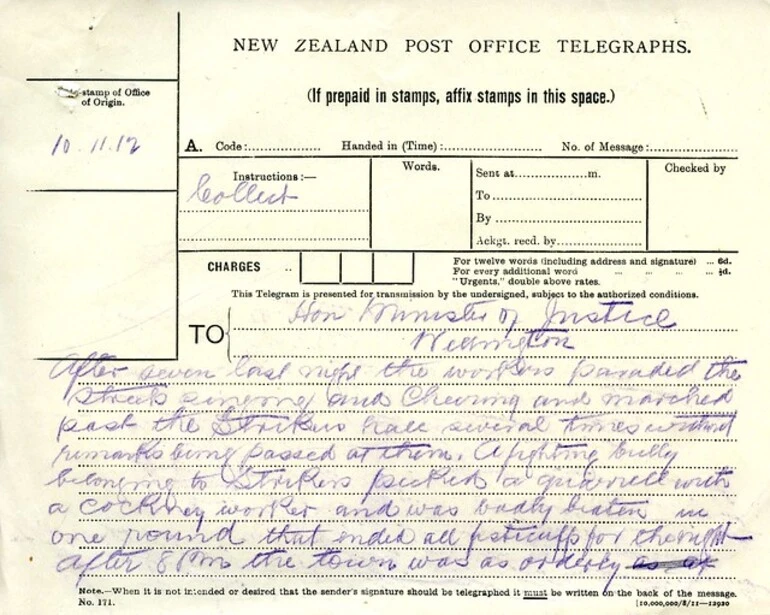 NEW ZEALAND POST OFFICE TELEGRAPHS.
(If prepaid in stamps, affix stamps in this space.)
stamp of Office
of Origin.
10.11.12
A. Code:.................. Handed in (Time):........................ No. of Message:.....................
Instructions:—
Collect
Words.
Sent at....................m.
To
By
Ackgt. recd. by
Checked by
CHARGES ..
For twelve words (including address and signature) ... 6d.
For every additional word ... ... ... ... ½d.
"Urgents," double above rates.
This Telegram is presented for transmission by the undersigned, subject to the authorized conditions.
TO
Hon Minister of Justice
Wellington
After seven last night the workers paraded the
streets singing and cheering and marched
past the Strikers hall several times without
remarks being passed at them. A fighting bully
belonging to Strikers picked a quarrell with
a cockney worker and was badly beaten in
one round that ended all fisticuffs for the night
After 8 PM the town was as orderly as
Note.—When it is not intended or desired that the sender's signature should be telegraphed it must be written on the back of the message.
No. 171.
[10,000,000/8/11—12920